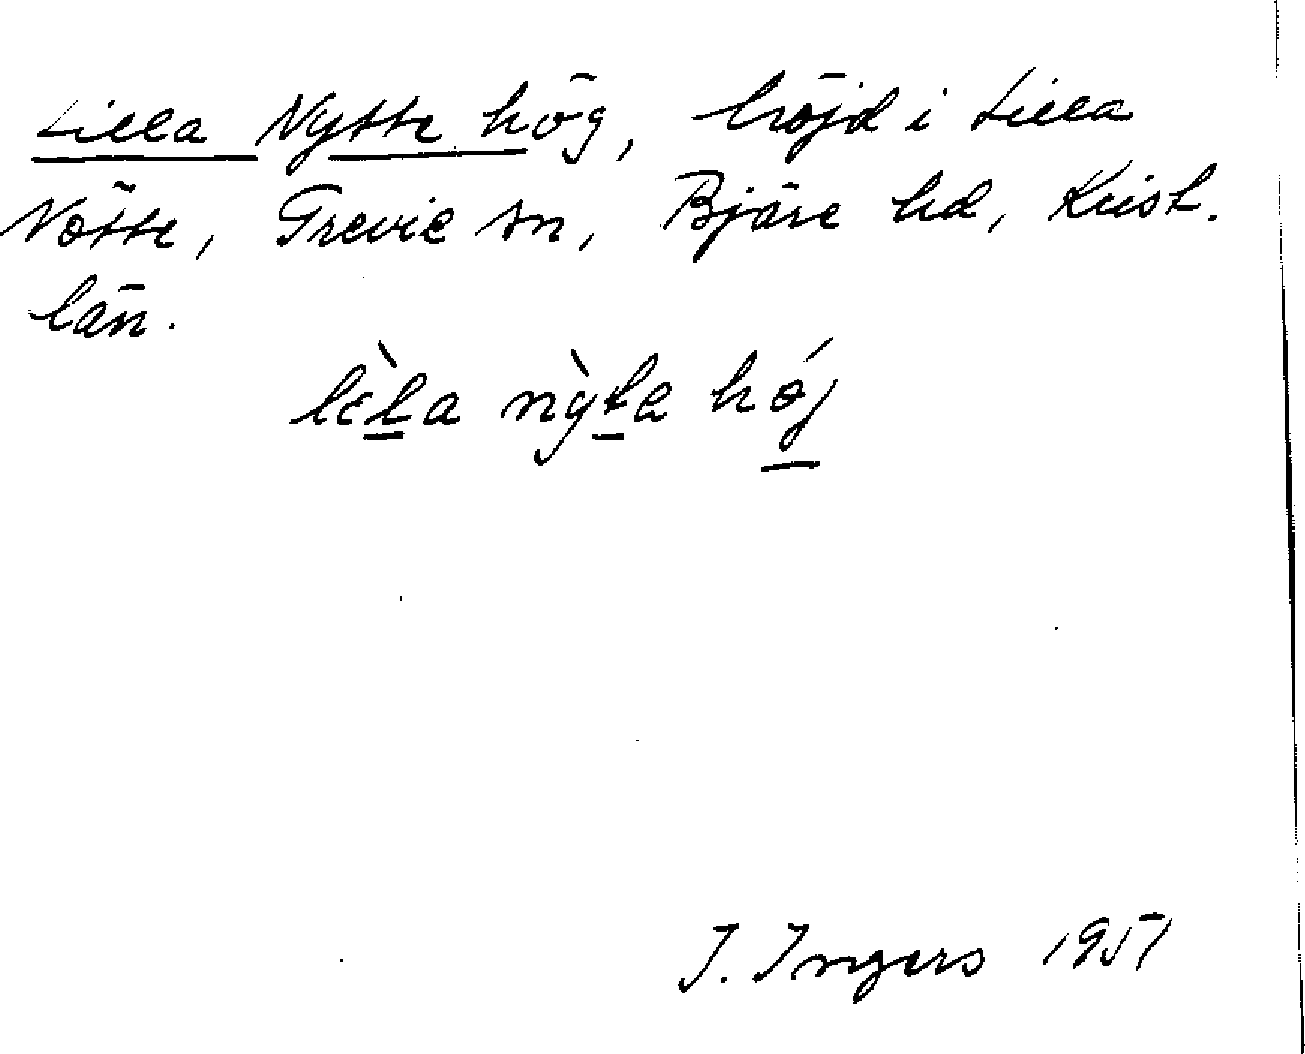 Lilla Nytte hög, höjd i Lilla
Nötte, Grevie sn, Bjäre hd, Krist.
län.
lèl̲a nỳt̲e hǿj̲
I. Ingers 1951